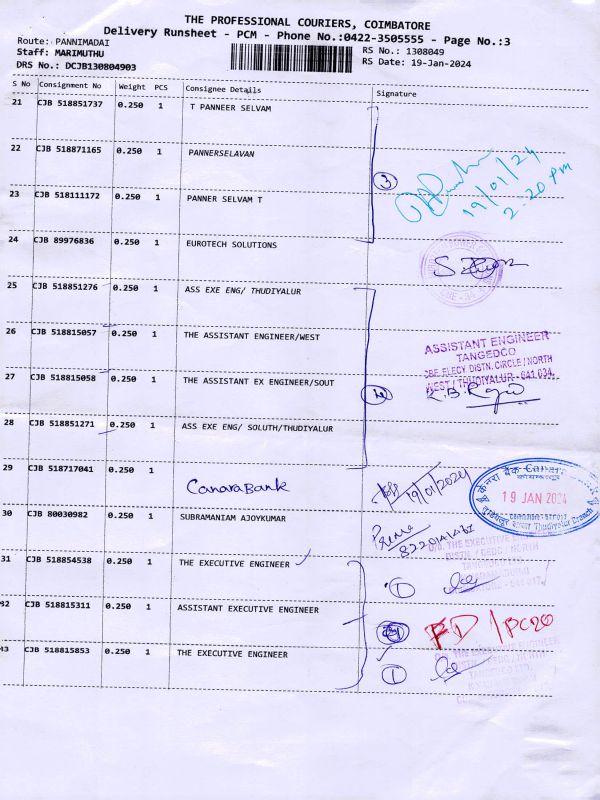 THE PROFESSIONAL COURIERS, COIMBATORE
Delivery Runsheet - PCM - Phone No.:0422-3505555 - Page No.:3
Route: PANNIMADAI
Staff: MARIMUTHU
DRS No.: DCJB130804903
RS No.: 1308049
RS Date: 19-Jan-2024
S No Consignment No Weight PCS Consignee Details Signature
21 CJB 518851737 0.250 1 T PANNEER SELVAM
22 CJB 518871165 0.250 1 PANNERSELAVAN
19/01/24
2.20 PM
3
23 CJB 518111172 0.250 1 PANNER SELVAM T
24 CJB 89976836 0.250 1 EUROTECH SOLUTIONS
25 CJB 518851276 0.250 1 ASS EXE ENG/ THUDIYALUR
26 CJB 518815057 0.250 1 THE ASSISTANT ENGINEER/WEST
ASSISTANT ENGINEER
TANGEDCO
CBE ELECY DISTN. CIRCLE / NORTH
WEST / THUDIYALUR - 641 034.
27 CJB 518815058 0.250 1 THE ASSISTANT EX ENGINEER/SOUT
28 CJB 518851271 0.250 1 ASS EXE ENG/ SOLUTH/THUDIYALUR
29 CJB 518717041 0.250 1 Canara Bank
19/01/2024
केनरा बैंक Canara
19 JAN 2024
Thudiyalur Branch
30 CJB 80030982 0.250 1 SUBRAMANIAM AJOYKUMAR
31 CJB 518854538 0.250 1 THE EXECUTIVE ENGINEER
1
32 CJB 518815311 0.250 1 ASSISTANT EXECUTIVE ENGINEER
FD / BC20
33 CJB 518815853 0.250 1 THE EXECUTIVE ENGINEER
1